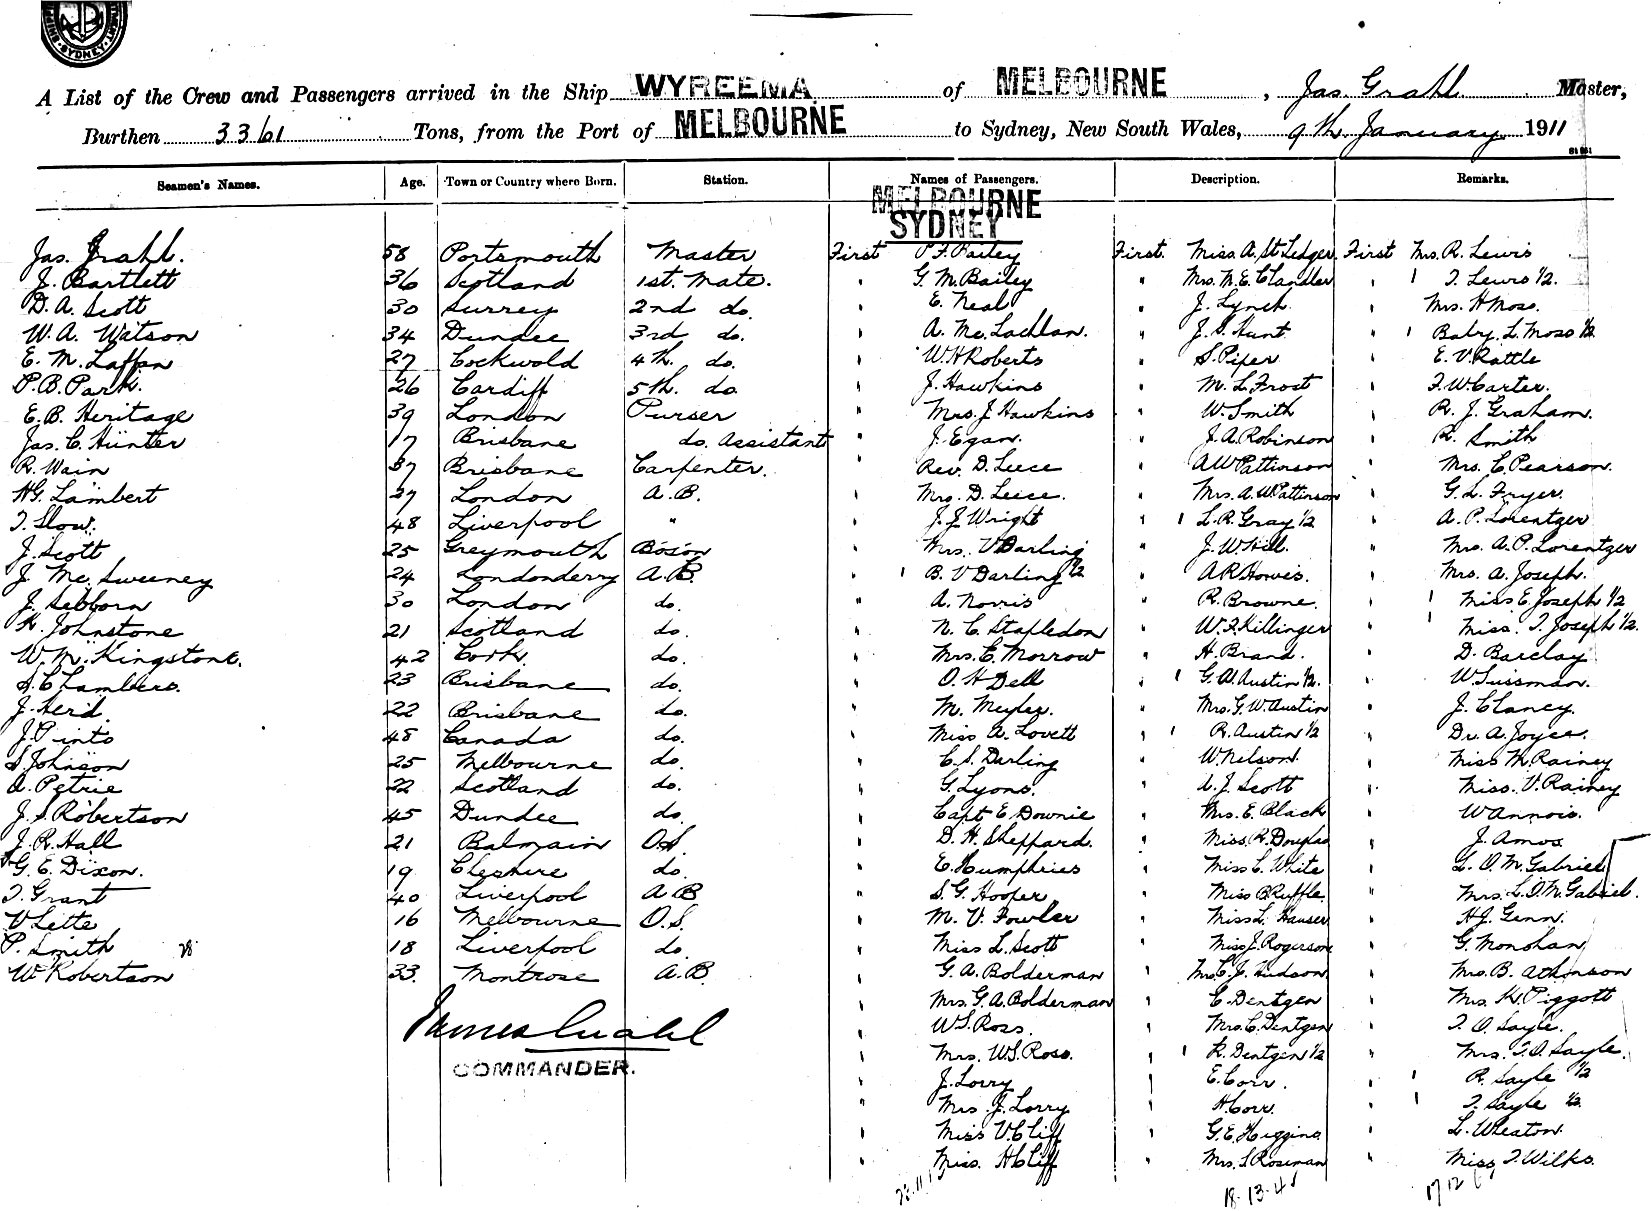 SYDNEY
A List of the Crew and Passengers arrived in the Ship WYREEMA of MELBOURNE, Jas. Grahl Master,
Burthen 3361 Tons, from the Port of MELBOURNE to Sydney, New South Wales, 9th January 1911
Seamen's Names. Age. Town or Country where Born. Station. Names of Passengers. Description. Remarks.
MELBOURNE
SYDNEY
Jas. Grahl. 58 Portsmouth Master First P. F. Pailey First. Miss A. St Ledger First Mrs. R. Lewis
J. Bartlett 36 Scotland 1st. Mate. " G. M. Bailey " Mrs. M. E. Chandler " 1 T. Lewis 1/2.
D. A. Scott 30 Surrey 2nd do. " E. Neal " J. Lynch. " Mrs. H Moss.
W. A. Watson 34 Dundee 3rd do. " A. Mc. Lachlan. " J. S. Hunt. " 1 Baby. L. Moss 1/2
E. M. Laffan 27 Cockwold 4th. do. " W. H Roberts " S. Piper " E. V. Rattle
P. B. Park. 26 Cardiff 5th. do. " J. Hawkins " M. L. Frost " F. W Carter.
E. B. Heritage 39 London Purser " Mrs. J. Hawkins " W. Smith " R. J. Graham.
Jas. C. Hunter 17 Brisbane do. Assistant " J. Egan. " J. A. Robinson " R. Smith
R. Wain 37 Brisbane Carpenter. " Rev. D. Leece " A W Pattinson " Mrs. C. Pearson.
H. G. Lambert 27 London A. B. " Mrs. D. Leece. " Mrs. A. W. Pattinson " G. L. Fryer.
T. Slow. 48 Liverpool " " J. J. Wright " 1 L. R. Gray 1/2 " A. P. Lorentzer
J. Scott 25 Greymouth Bosón " Mrs. V Darling " J. W. Hill. " Mrs. A. P. Lorentzer
J. Mc. Sweeney 24 Londonderry A. B. " 1 B. V Darling 1/2 " A R Howes. " Mrs. A. Joseph.
J. Sebborn 30 London do. " A. Norris " R. Browne. " 1 Miss E. Joseph 1/2
K. Johnstone 21 Scotland do. " N. C. Stapledon " W. F. Killinger " 1 Miss. T. Joseph 1/2.
W. M. Kingstone. 42 Cork. do. " Mrs. C. Morrow " H. Brand. " D. Barclay
S. Chambers. 23 Brisbane do. " O. H Dell " 1 G. W. Austin 1/2. " W. Sussman.
J. Herd. 22 Brisbane do. " M. Meyler. " Mrs. G. W. Austin " J. Clancy.
J. Pinto 48 Canada do. " Miss A. Lovett " 1 R. Austin 1/2 " Dr. A. Joyce.
S. Johnson 25 Melbourne do. " C. S. Darling " W. Nelson. " Miss M. Rainey
A. Petrie 22 Scotland do. " G. Lyons. " A. J. Scott " Miss. V. Rainey
J. S. Robertson 45 Dundee do. " Capt E. Downie " Mrs. E. Black " W Annois.
J. R. Hall 21 Balmain O S " D. H. Sheppard. " Miss. R. Douglas " J. Amos
G. E. Dixon. 19 Cheshire do. " E. Humphries " Miss C. White " L. O. M. Gabriel
T. Grant 40 Liverpool A B " S. G. Hooper " Miss B. Ruffle. " Mrs. L. O. M. Gabriel.
V. Lette 16 Melbourne O. S. " M. V. Fowler " Miss L. Hauser " H. J. Genn.
P. Smith 28 18 Liverpool do. " Miss L. Scott " Miss J. Rogerson " G. Monohan
W. Robertson 33 Montrose A. B. " G. A. Bolderman " Mrs. C. J. Hudson " Mrs. B. Atkinson
" Mrs. G. A. Bolderman " C. Dentgen " Mrs. K. Piggott
James Grahl " W. S. Ross. " Mrs. C. Dentgen " T. O. Sayle.
COMMANDER. " Mrs. W. S. Ross. " 1 K. Dentgen 1/2 " Mrs. T. O. Sayle.
" J. Lorry " E. Corr. " 1 R. Sayle 1/2
" Mrs J. Lorry " H. Corr. " 1 T. Sayle 1/2
" Miss V. Cliff " G. E. Higgins " L. Wheaton.
" Miss. H Cliff " Mrs. S. Roseman " Miss T. Wilks.
18-13-4